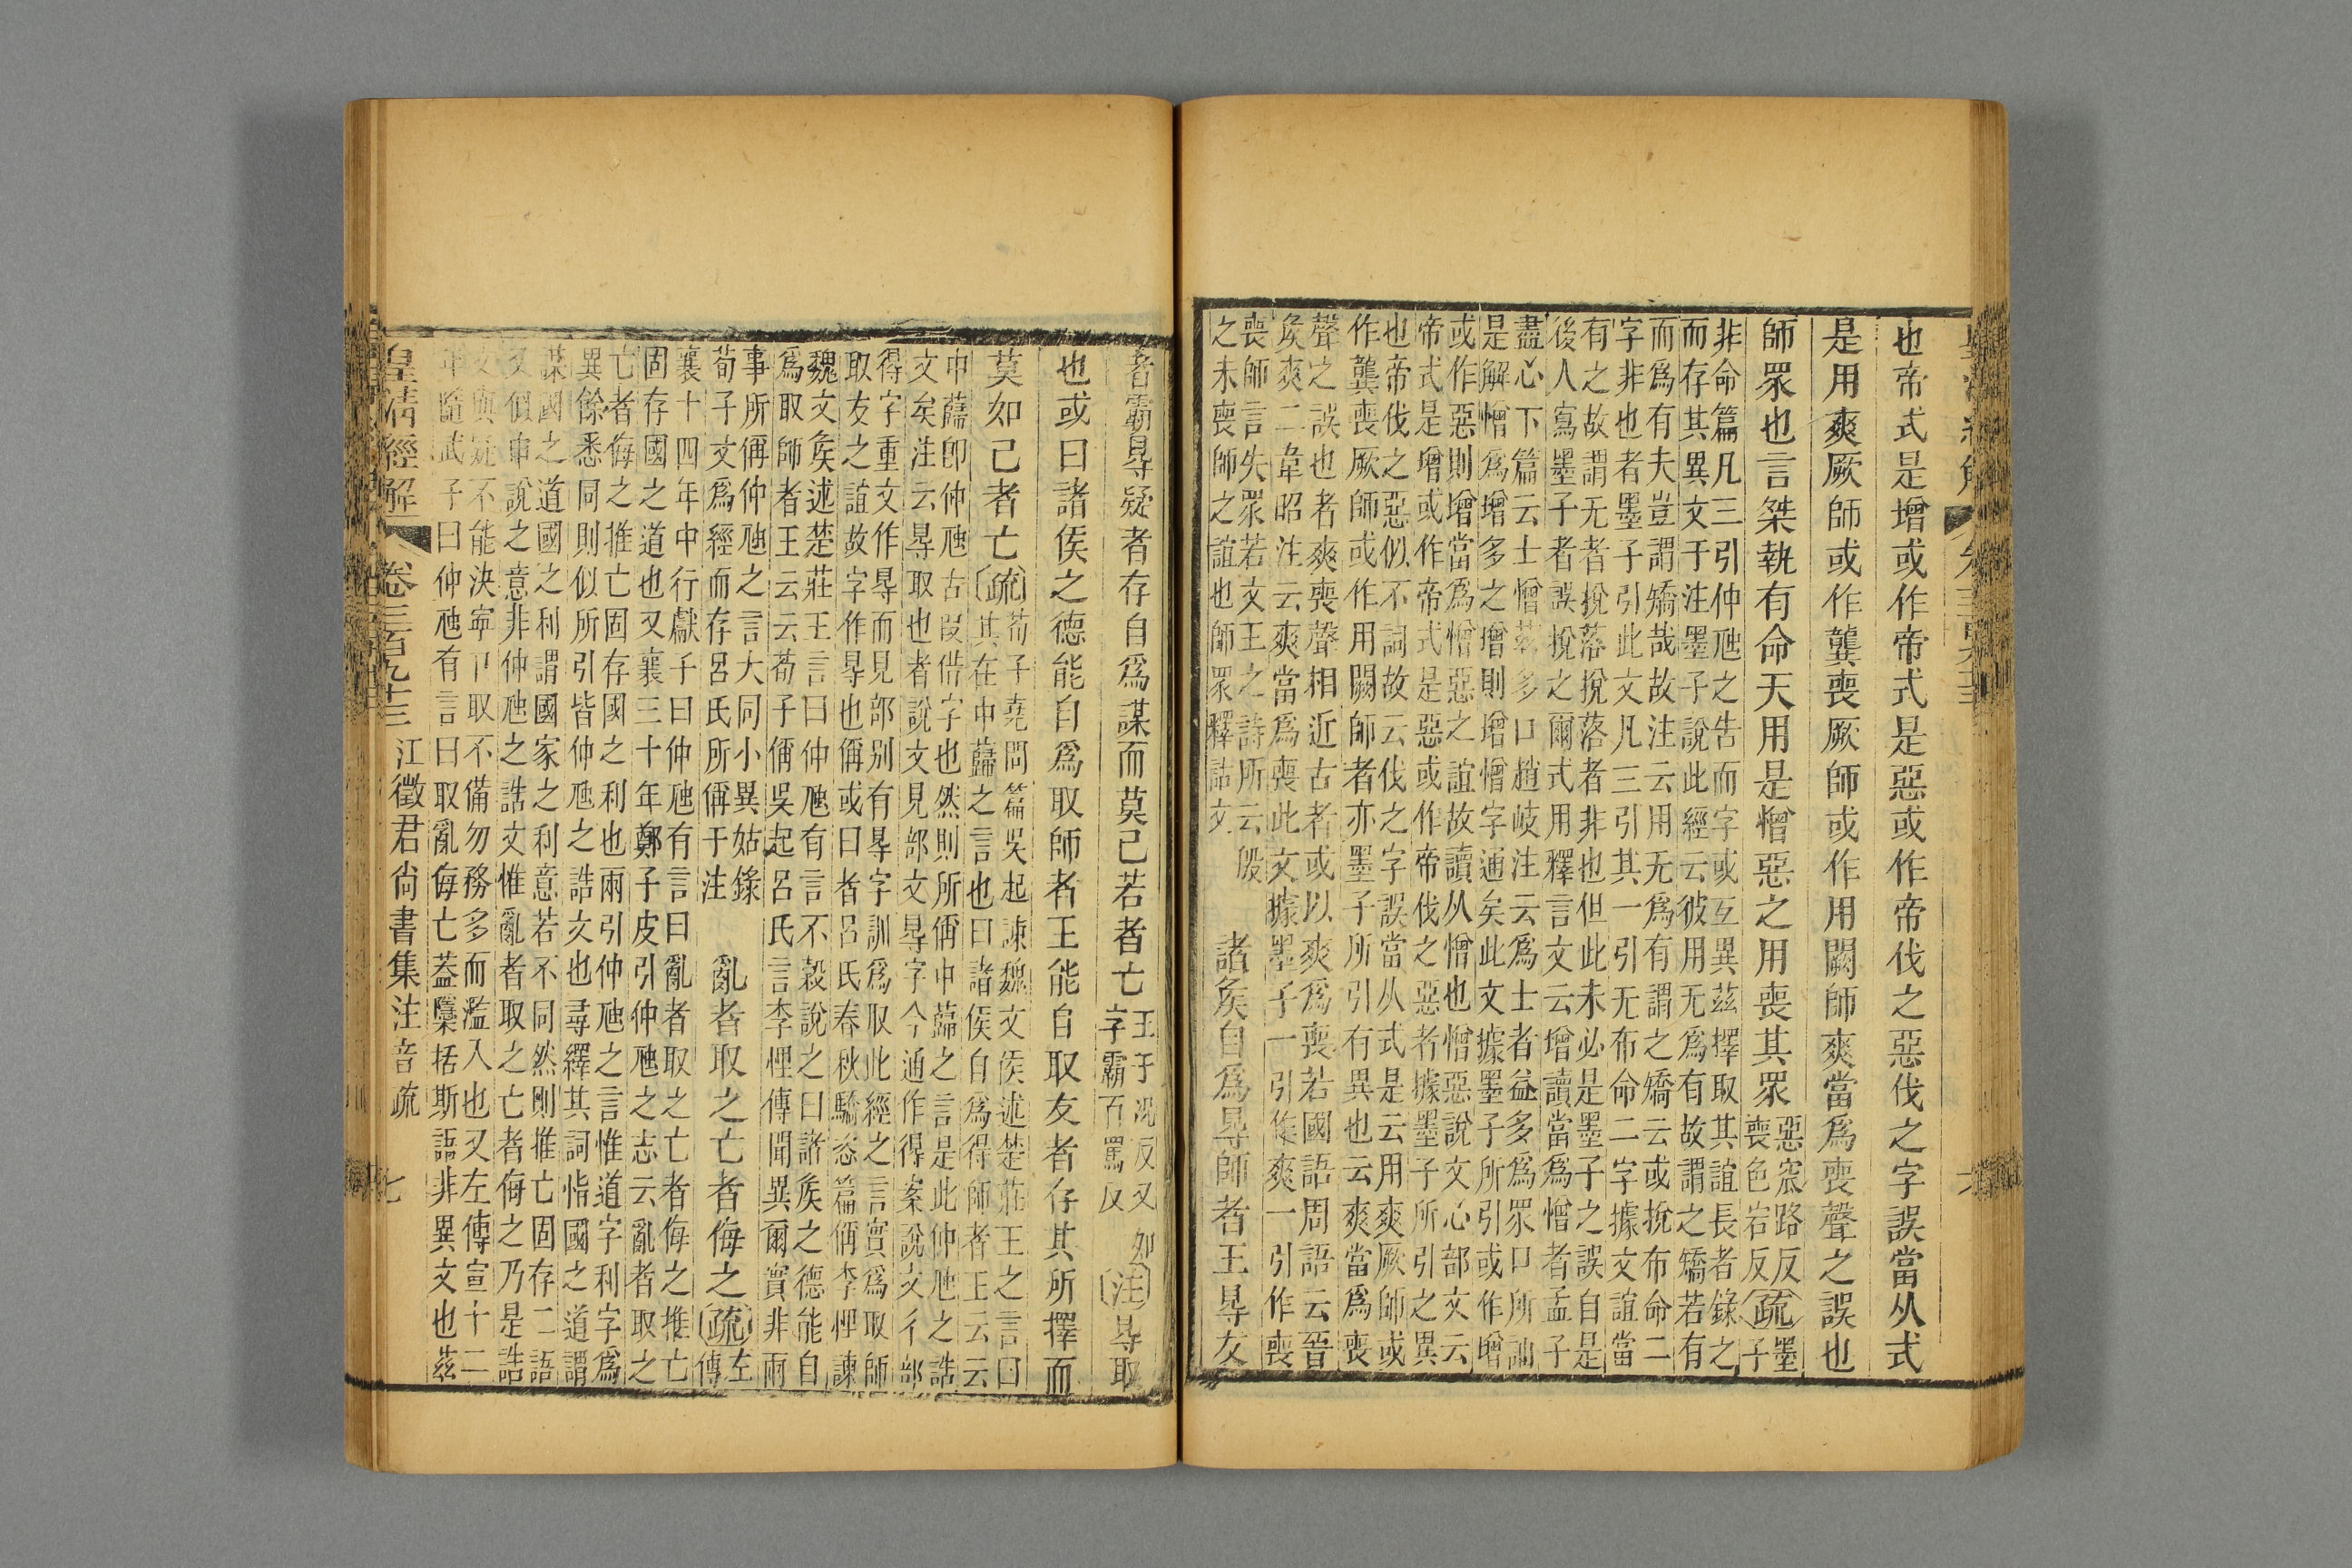 也帝式是增或作帝式是惡或作帝伐之惡伐之字誤當从式
是用爽厥師或作龔喪厥師或作用闕師爽當爲喪聲之誤也
師眾也言桀執有命天用是憎惡之用喪其眾
惡窊路反
喪色宕反
疏
墨
子
非命篇凡三引仲虺之告而字或互異茲擇取其誼長者錄之
而存其異文于注墨子說此經云彼用无爲有故謂之矯若有
而爲有夫豈謂矯哉故注云用无爲有謂之矯云或挩布命二
字非也者墨子引此文凡三引其一引无布命二字據文誼當
有之故謂无者挩落挩落者非也但此未必是墨子之誤自是
後人寫墨子者誤挩之爾式用釋言文云增讀當爲憎者孟子
盡心下篇云士憎茲多口趙岐注云爲士者益多爲眾口所訕
是解憎爲增多之增則增憎字通矣此文據墨子所引或作增
或作惡則增當爲憎惡之誼故讀从憎也憎惡說文心部文云
帝式是增或作帝式是惡或作帝伐之惡者據墨子所引之異
也帝伐之惡似不詞故云伐之字誤當从式是云用爽厥師或
作龔喪厥師或作用闕師者亦墨子所引有異也云爽當爲喪
聲之誤也者爽喪聲相近古者或以爽爲喪若國語周語云晉
矦爽二韋昭注云爽當爲喪此文據墨子一引作爽一引作喪
喪師言失眾若文王之詩所云殷
之未喪師之誼也師眾釋詁文
諸矦自爲㝵師者王㝵友
者霸㝵疑者存自爲謀而莫己若者亡
王于況反又
字霸百罵反
如
注
㝵取
也或曰諸矦之德能自爲取師者王能自取友者存其所擇而
莫如己者亡
疏
荀子堯問篇吳起諫魏文矦述楚莊王之言曰
其在中蘬之言也曰諸矦自爲得師者王云云
中蘬卽仲虺古叚借字也然則所偁中蘬之言是此仲虺之誥
文矣注云㝵取也者說文見部文㝵字今通作得案說文彳部
得字重文作㝵而見部別有㝵字訓爲取此經之言實爲取師
取友之誼故字作㝵也偁或曰者呂氏春秋驕恣篇偁李悝諫
魏文矦述楚莊王言曰仲虺有言不穀說之曰諸矦之德能自
爲取師者王云云荀子偁吳起呂氏言李悝傳聞異爾實非兩
事所偁仲虺之言大同小異姑錄
荀子文爲經而存呂氏所偁于注
亂者取之亡者侮之
疏
左
傳
襄十四年中行獻子曰仲虺有言曰亂者取之亡者侮之推亡
固存國之道也又襄三十年鄭子皮引仲虺之志云亂者取之
亡者侮之推亡固存國之利也兩引仲虺之言惟道字利字爲
異餘悉同則似所引皆仲虺之誥文也尋繹其詞恉國之道謂
謀國之道國之利謂國家之利意若不同然則推亡固存二語
又似申說之意非仲虺之誥文惟亂者取之亡者侮之乃是誥
文與疑不能決寧卩取不備勿務多而濫入也又左傳宣十二
年隨武子曰仲虺有言曰取亂侮亡葢檃括斯語非異文也茲
皇淸經解
卷三百九十三
江徵君尙書集注音疏
七